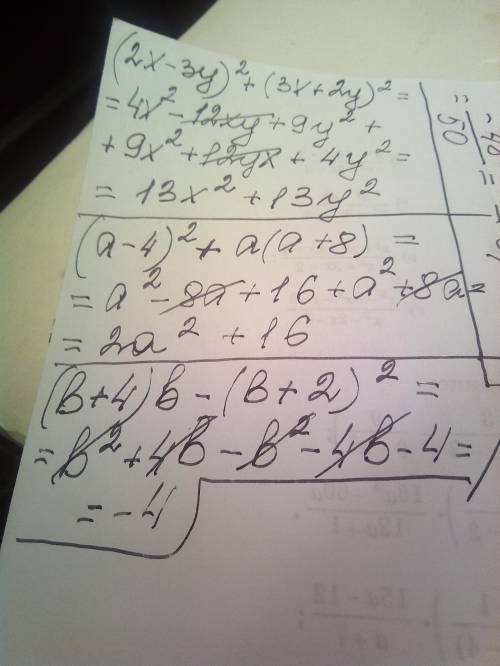 (2x-3y)² + (3x+2y)² =
= 4x² - 12xy + 9y² +
+ 9x² + 12yx + 4y² =
= 13x² + 13y²
(a-4)² + a(a+8) =
= a² - 8a + 16 + a² + 8a =
= 2a² + 16
(b+4)b - (b+2)² =
= b² + 4b - b² - 4b - 4 =
= -4
50